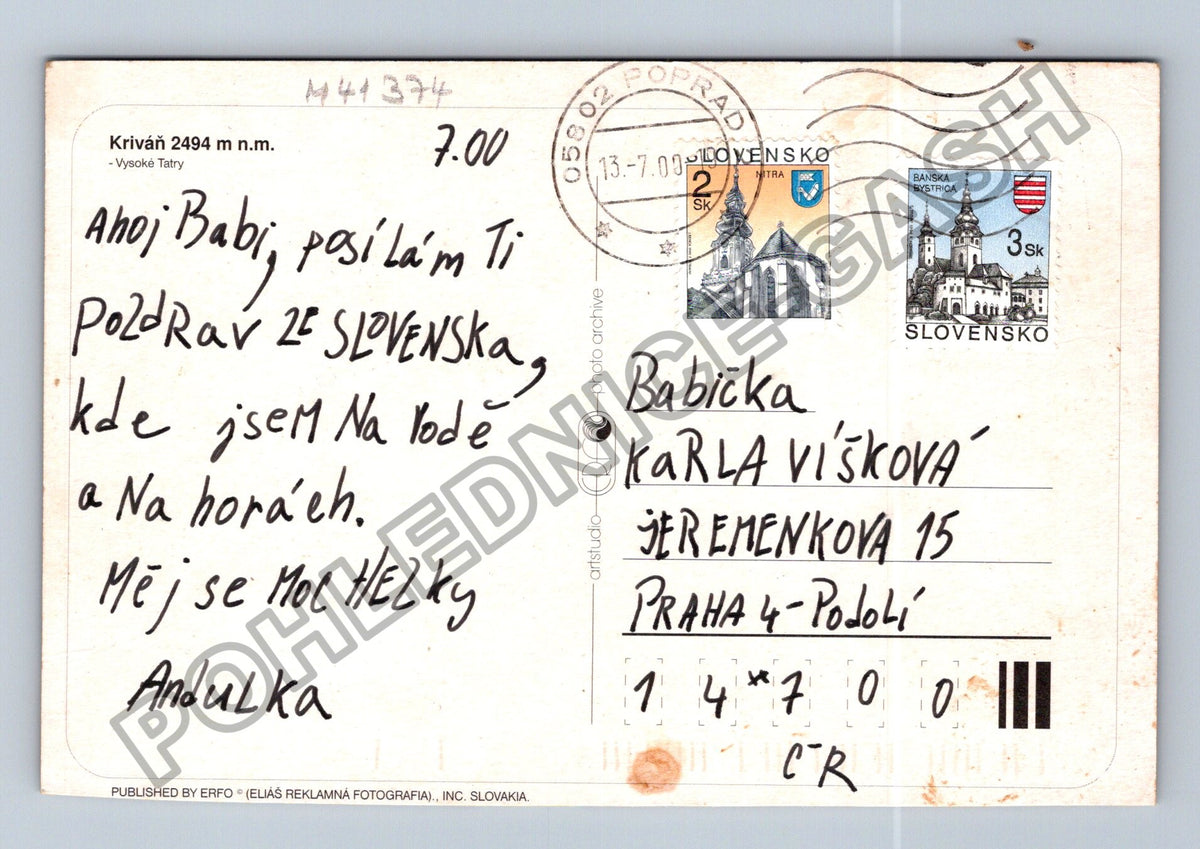 M 41 374
Kriváň 2494 m n.m.
- Vysoké Tatry
7.00
Ahoj Babi, posílám Ti
pozdrav ze SLOVENSKA,
kde jsem Na vodě
a Na horách.
Měj se moc HEZKy
AndULKa
PUBLISHED BY ERFO © (ELIÁŠ REKLAMNÁ FOTOGRAFIA)., INC. SLOVAKIA.
artstudio
photo archive
05802 POPRAD
13.-7.00
SLOVENSKO
2
Sk
NITRA
BANSKÁ
BYSTRICA
3 Sk
SLOVENSKO
Babička
KaRLA VÍŠKOVÁ
JEREMENKOVA 15
PRAHA 4 - Podolí
1 4 7 0 0
ČR
POHLEDNICE-GASH